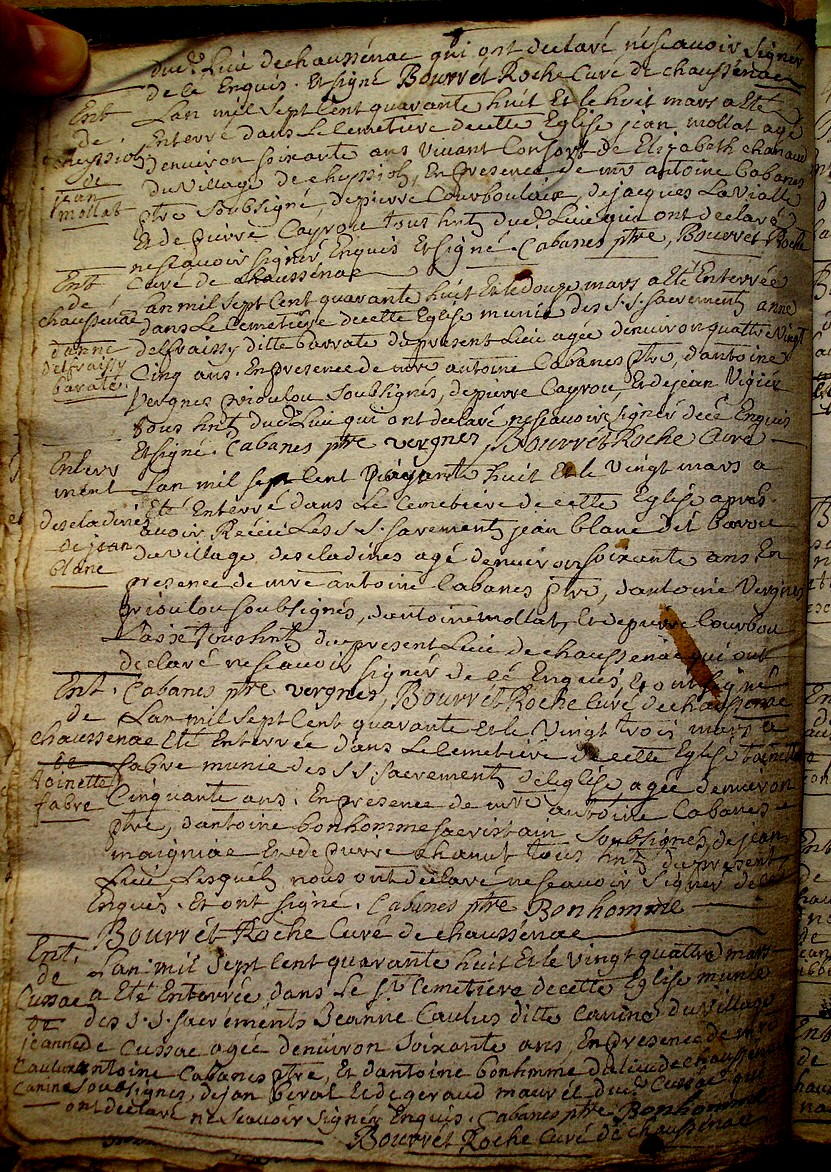 dud. Lieu dechaussénac qui ont declaré nescavoir signér
de ce Enquis. Et signé Bourrét Roche Curé de chaussénac
Ent. de cheyssiol de jean mollat
Lan mil sept cent quarante huit Et le huit mars a Eté
Enterré dans Le Cemetiére decette Eglise jean mollat agé
denviron soixante ans vivant Consort de Elizabeth chanaud
du village de cheyssiol, En presence de mre antoine Cabanes
ptre soubsigné, depierre Courboulaix, dejacques La vialle
Et de pierre Cayrou tous hnts dud. Lieu qui ont declaré
nescavoir signér Enquis Et signé. Cabanes ptre, Bourrét Roche
Curé de chaussénac
Ent. de chaussenac danne delfraissy barate.
Lan mil sept Cent quarante huit Et le douze mars a eté Enterrée
dans Le Cemetiére decette Eglise munie des S.S. sacrements anne
delfraissy ditte barrate du present Lieu agée denviron quattre vingt
Cinq ans. En presence de mre antoine Cabanes ptre, dantoine
vergnes prioulou soubsignés, depierre Cayrou, Et dejean Vigiér
tous hnts dud. Lieu qui ont declaré nescavoir signér de cé Enquis
Et signé. Cabanes ptre vergnes, Bourrét Roche Curé
Enterrement descladines de jean blanc
Lan mil sept Cent quarante huit Et le vingt mars a
Eté Enterré dans Le Cemetiére de cette Eglise aprés
avoir Recéu Les S.S. sacrements jean blanc dit
du village descladines agé denviron soixante ans En
presence de mre antoine Cabanes ptre, dantoine Vergnes
prioulou soubsignés, dantoine mollat, Et depierre Courbou
Laixe tous hnts du present Lieu de chaussenac qui ont
declaré nescavoir signér de cé Enquis, Et ont signé
Cabanes ptre vergnes, Bourrét Roche Curé de chaussenac
Ent. de chaussenac de toinette fabre
Lan mil sept Cent quarante Et le Vingt trois mars a
Eté Enterrée dans Le Cemetiére decette Eglise toinette
fabre munie des S.S. sacrements de Leglise, agée denviron
Cinquante ans. En presence de mre antoine Cabanes
ptre, dantoine bonhomme sacristain soubsignés, de jean
maigniac Et de pierre chanut tous hnts du present
Lieu, Lesquels nous ont declaré nescavoir signér de ce
Enquis. Et ont signé. Cabanes ptre Bonhomme
Bourrét Roche Curé de chaussénac
Ent. de Cussac de jeanne Caulus Canine
Lan mil sept Cent quarante huit Et le vingt quattre mars
a Eté Enterrée dans Le St. Cemetiére decette Eglise munie
des S.S. sacréments Jeanne Caulus ditte Canine du village
de Cussac agée denviron soixante ans, En presence de mre
antoine Cabanes ptre, Et dantoine bonhomme du lieu de chaussénac
soubsignes, de jean beral Et de geraud mauret dud. Cussac qui
ont declaré nescavoir signér Enquis. Cabanes ptre Bonhomme
Bourrét Roche Curé de chaussénac